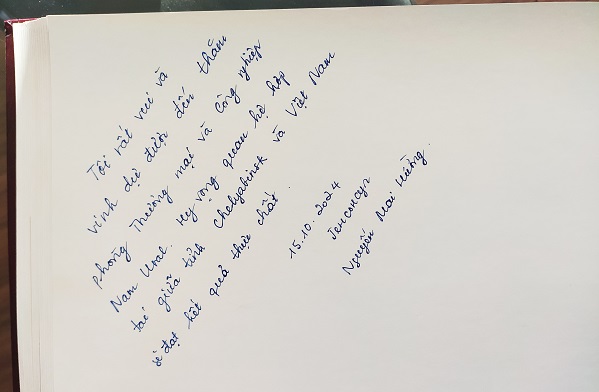 Tôi rất vui và
vinh dự được đến thăm
phòng Thương mại và Công nghiệp
Nam Ural. Hy vọng quan hệ hợp
tác giữa tỉnh Chelyabinsk và Việt Nam
sẽ đạt kết quả thực chất.
15.10.2024
Генсмаул
Nguyễn Mai Hường.